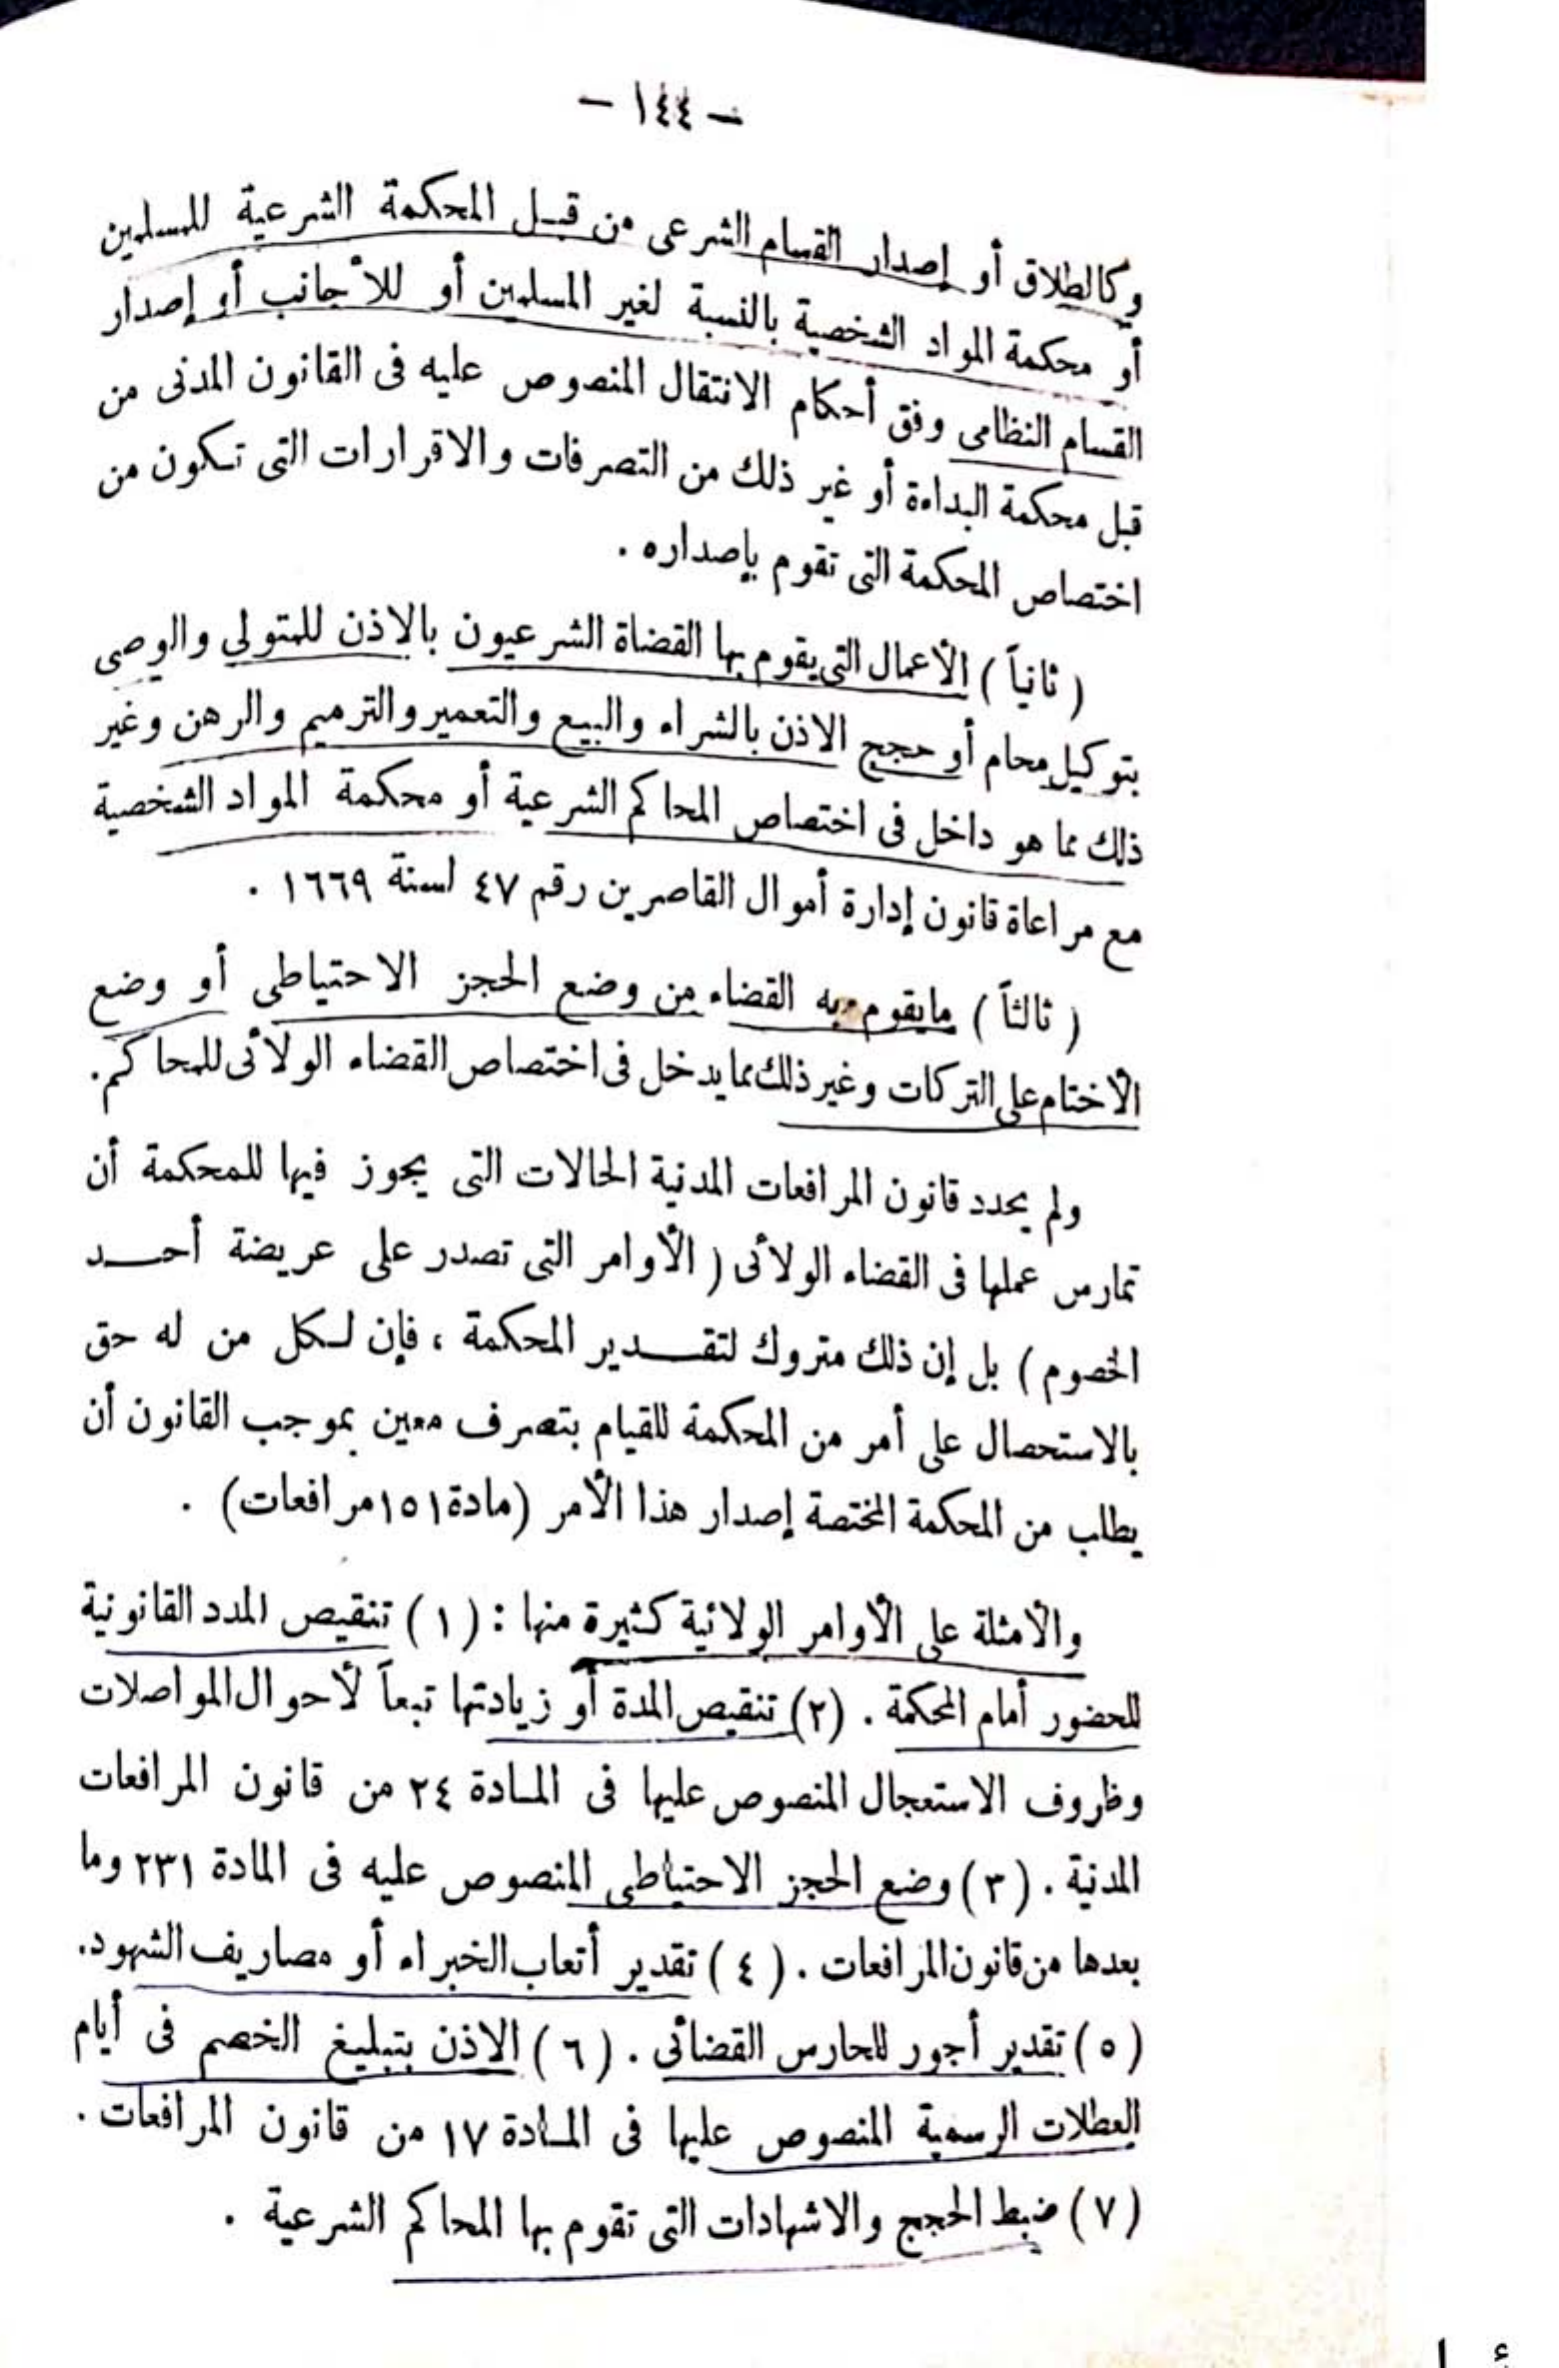 — ١٤٤ —
وكالطلاق أو إصدار القسام الشرعى من قبل المحكمة الشرعية للمسلمين
أو محكمة المواد الشخصية بالنسبة لغير المسلمين أو للأجانب أو إصدار
القسام النظامى وفق أحكام الانتقال المنصوص عليه فى القانون المدنى من
قبل محكمة البداءة أو غير ذلك من التصرفات والاقرارات التى تكون من
اختصاص المحكمة التى تقوم بإصداره .
( ثانياً ) الأعمال التى يقوم بها القضاة الشرعيون بالاذن للمتولي والوصى
بتوكيل محام أو حجج الاذن بالشراء والبيع والتعمير والترميم والرهن وغير
ذلك مما هو داخل فى اختصاص المحاكم الشرعية أو محكمة المواد الشخصية
مع مراعاة قانون إدارة أموال القاصرين رقم ٤٧ لسنة ١٦٦٩ .
( ثالثاً ) مايقوم به القضاء من وضع الحجز الاحتياطى أو وضع
الأختام على التركات وغير ذلك مما يدخل فى اختصاص القضاء الولائى للمحاكم.
ولم يحدد قانون المرافعات المدنية الحالات التى يجوز فيها للمحكمة أن
تمارس عملها فى القضاء الولائى ( الأوامر التى تصدر على عريضة أحد
الخصوم ) بل إن ذلك متروك لتقدير المحكمة ، فإن لكل من له حق
بالاستحصال على أمر من المحكمة للقيام بتصرف معين بموجب القانون أن
يطلب من المحكمة المختصة إصدار هذا الأمر (مادة ١٥١ مرافعات) .
والأمثلة على الأوامر الولائية كثيرة منها : ( ١ ) تنقيص المدد القانونية
للحضور أمام المحكمة . (٢) تنقيص المدة أو زيادتها تبعاً لأحوال المواصلات
وظروف الاستعجال المنصوص عليها فى المادة ٢٤ من قانون المرافعات
المدنية . ( ٣ ) وضع الحجز الاحتياطى المنصوص عليه فى المادة ٢٣١ وما
بعدها من قانون المرافعات . ( ٤ ) تقدير أتعاب الخبراء أو مصاريف الشهود.
( ٥ ) تقدير أجور للحارس القضائى . ( ٦ ) الاذن بتبليغ الخصم فى أيام
العطلات الرسمية المنصوص عليها فى المادة ١٧ من قانون المرافعات .
( ٧ ) ضبط الحجج والاشهادات التى تقوم بها المحاكم الشرعية .